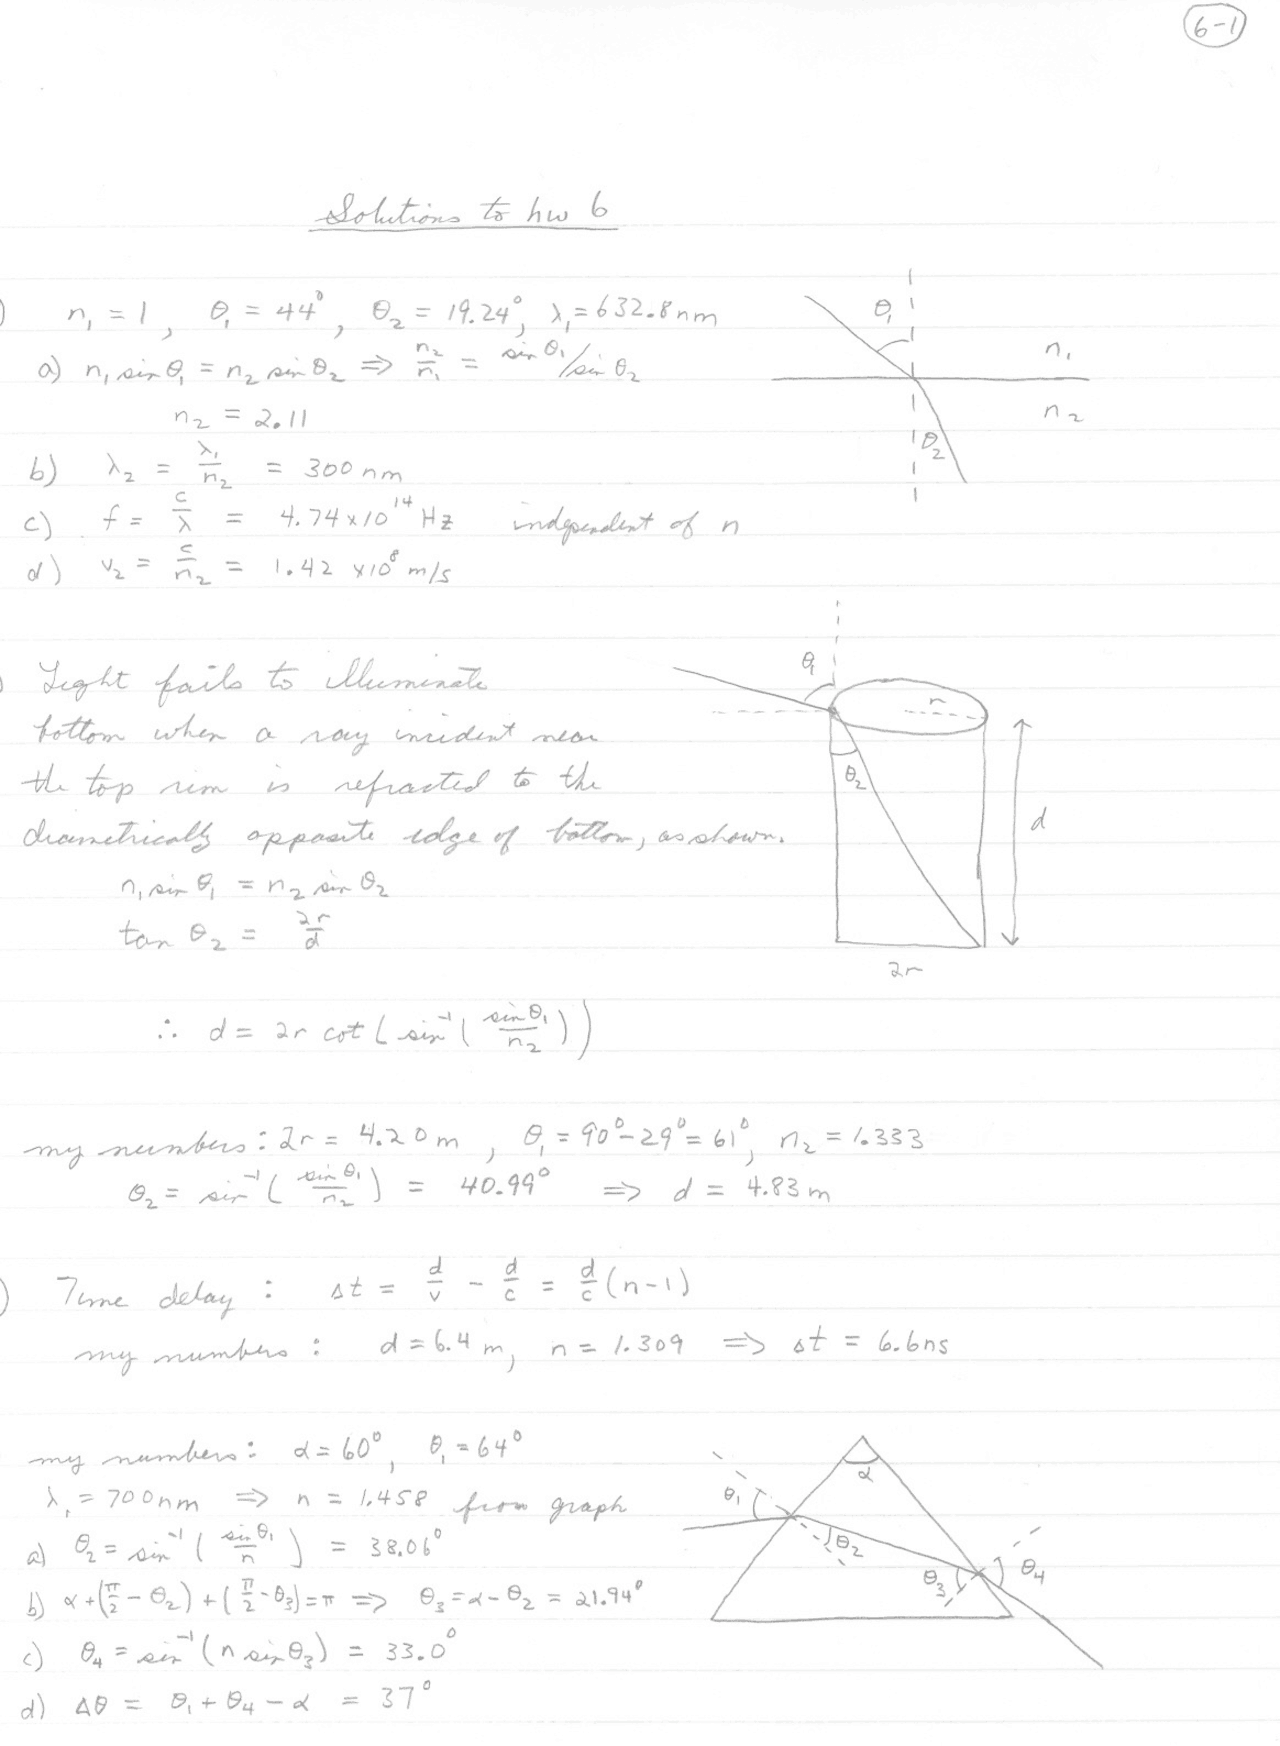 6-1
Solutions to hw 6
) n₁ = 1, θ₁ = 44°, θ₂ = 19.24°, λ₁ = 632.8 nm
a) n₁ sin θ₁ = n₂ sin θ₂ ⇒ n₂/n₁ = sin θ₁/sin θ₂
n₂ = 2.11
b) λ₂ = λ₁/n₂ = 300 nm
c) f = c/λ = 4.74 x 10¹⁴ Hz independent of n
d) v₂ = c/n₂ = 1.42 x 10⁸ m/s
θ₁
n₁
n₂
θ₂
) Light fails to illuminate
bottom when a ray incident near
the top rim is refracted to the
diametrically opposite edge of bottom, as shown.
n₁ sin θ₁ = n₂ sin θ₂
tan θ₂ = 2r/d
θ₁
r
θ₂
d
2r
∴ d = 2r cot(sin⁻¹(sin θ₁/n₂))
my numbers: 2r = 4.20 m, θ₁ = 90° - 29° = 61°, n₂ = 1.333
θ₂ = sin⁻¹(sin θ₁/n₂) = 40.99° ⇒ d = 4.83 m
) Time delay : Δt = d/v - d/c = d/c (n-1)
my numbers : d = 6.4 m, n = 1.309 ⇒ Δt = 6.6 ns
my numbers: α = 60°, θ₁ = 64°
λ₁ = 700 nm ⇒ n = 1.458 from graph
a) θ₂ = sin⁻¹(sin θ₁/n) = 38.06°
b) α + (π/2 - θ₂) + (π/2 - θ₃) = π ⇒ θ₃ = α - θ₂ = 21.94°
c) θ₄ = sin⁻¹(n sin θ₃) = 33.0°
d) Δθ = θ₁ + θ₄ - α = 37°
α
θ₁
θ₂
θ₃
θ₄